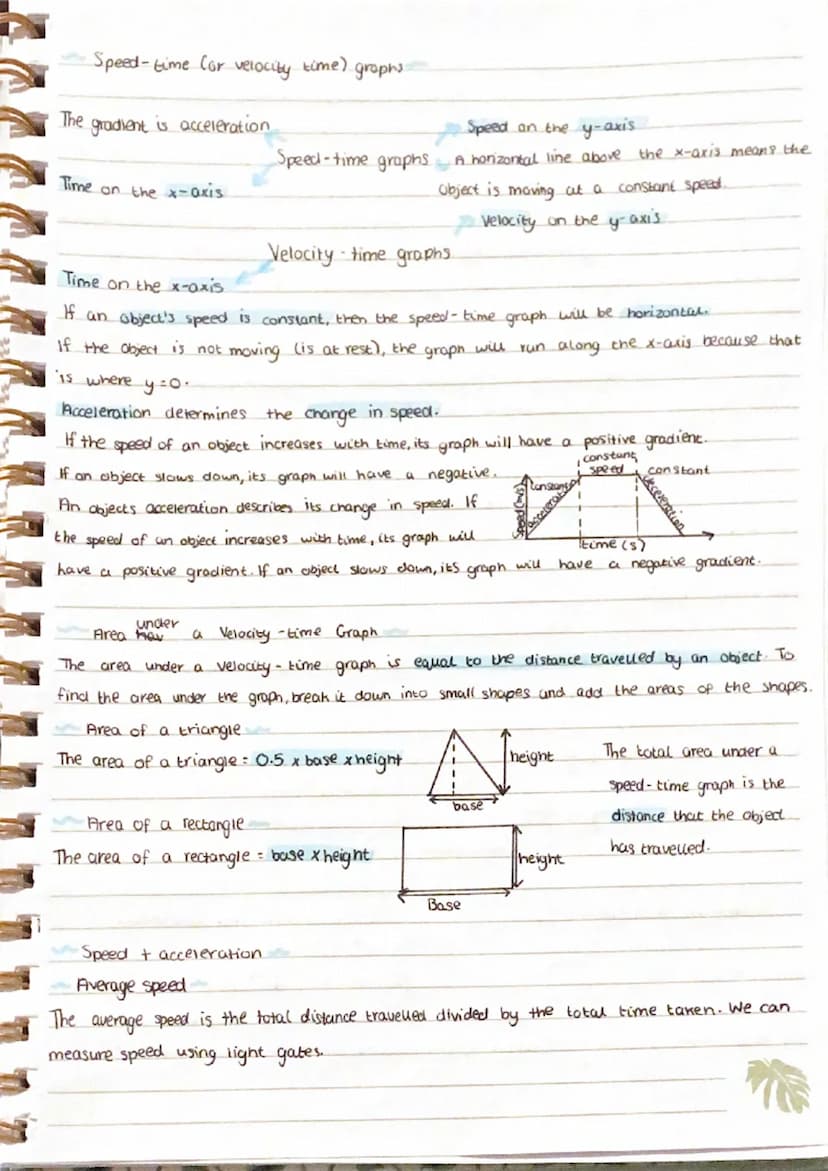 Speed-time (or velocity time) graphs
The gradient is acceleration
Speed on the y-axis
Speed-time graphs
A horizontal line above the x-axis means the
Time on the x-axis
object is moving at a constant speed.
Velocity on the y-axis
Velocity-time graphs
Time on the x-axis
If an object's speed is constant, then the speed-time graph will be horizontal.
If the object is not moving (is at rest), the graph will run along the x-axis because that
is where y=0.
Acceleration determines the change in speed.
If the speed of an object increases with time, its graph will have a positive gradient.
If an object slows down, its graph will have a negative.
An objects acceleration describes its change in speed. If
the speed of an object increases with time, its graph will
have a positive gradient. If an object slows down, its graph will have a negative gradient.
constant
speed
constant
deceleration
constant
acceleration
Speed (m/s)
time (s)
Area under a Velocity-time Graph
The area under a velocity-time graph is equal to the distance travelled by an object. To
find the area under the graph, break it down into small shapes and add the areas of the shapes.
Area of a triangle
The area of a triangle = 0.5 x base x height
height
base
The total area under a
speed-time graph is the
distance that the object
has travelled.
Area of a rectangle
The area of a rectangle = base x height
height
Base
Speed + acceleration
Average speed
The average speed is the total distance travelled divided by the total time taken. We can
measure speed using light gates.